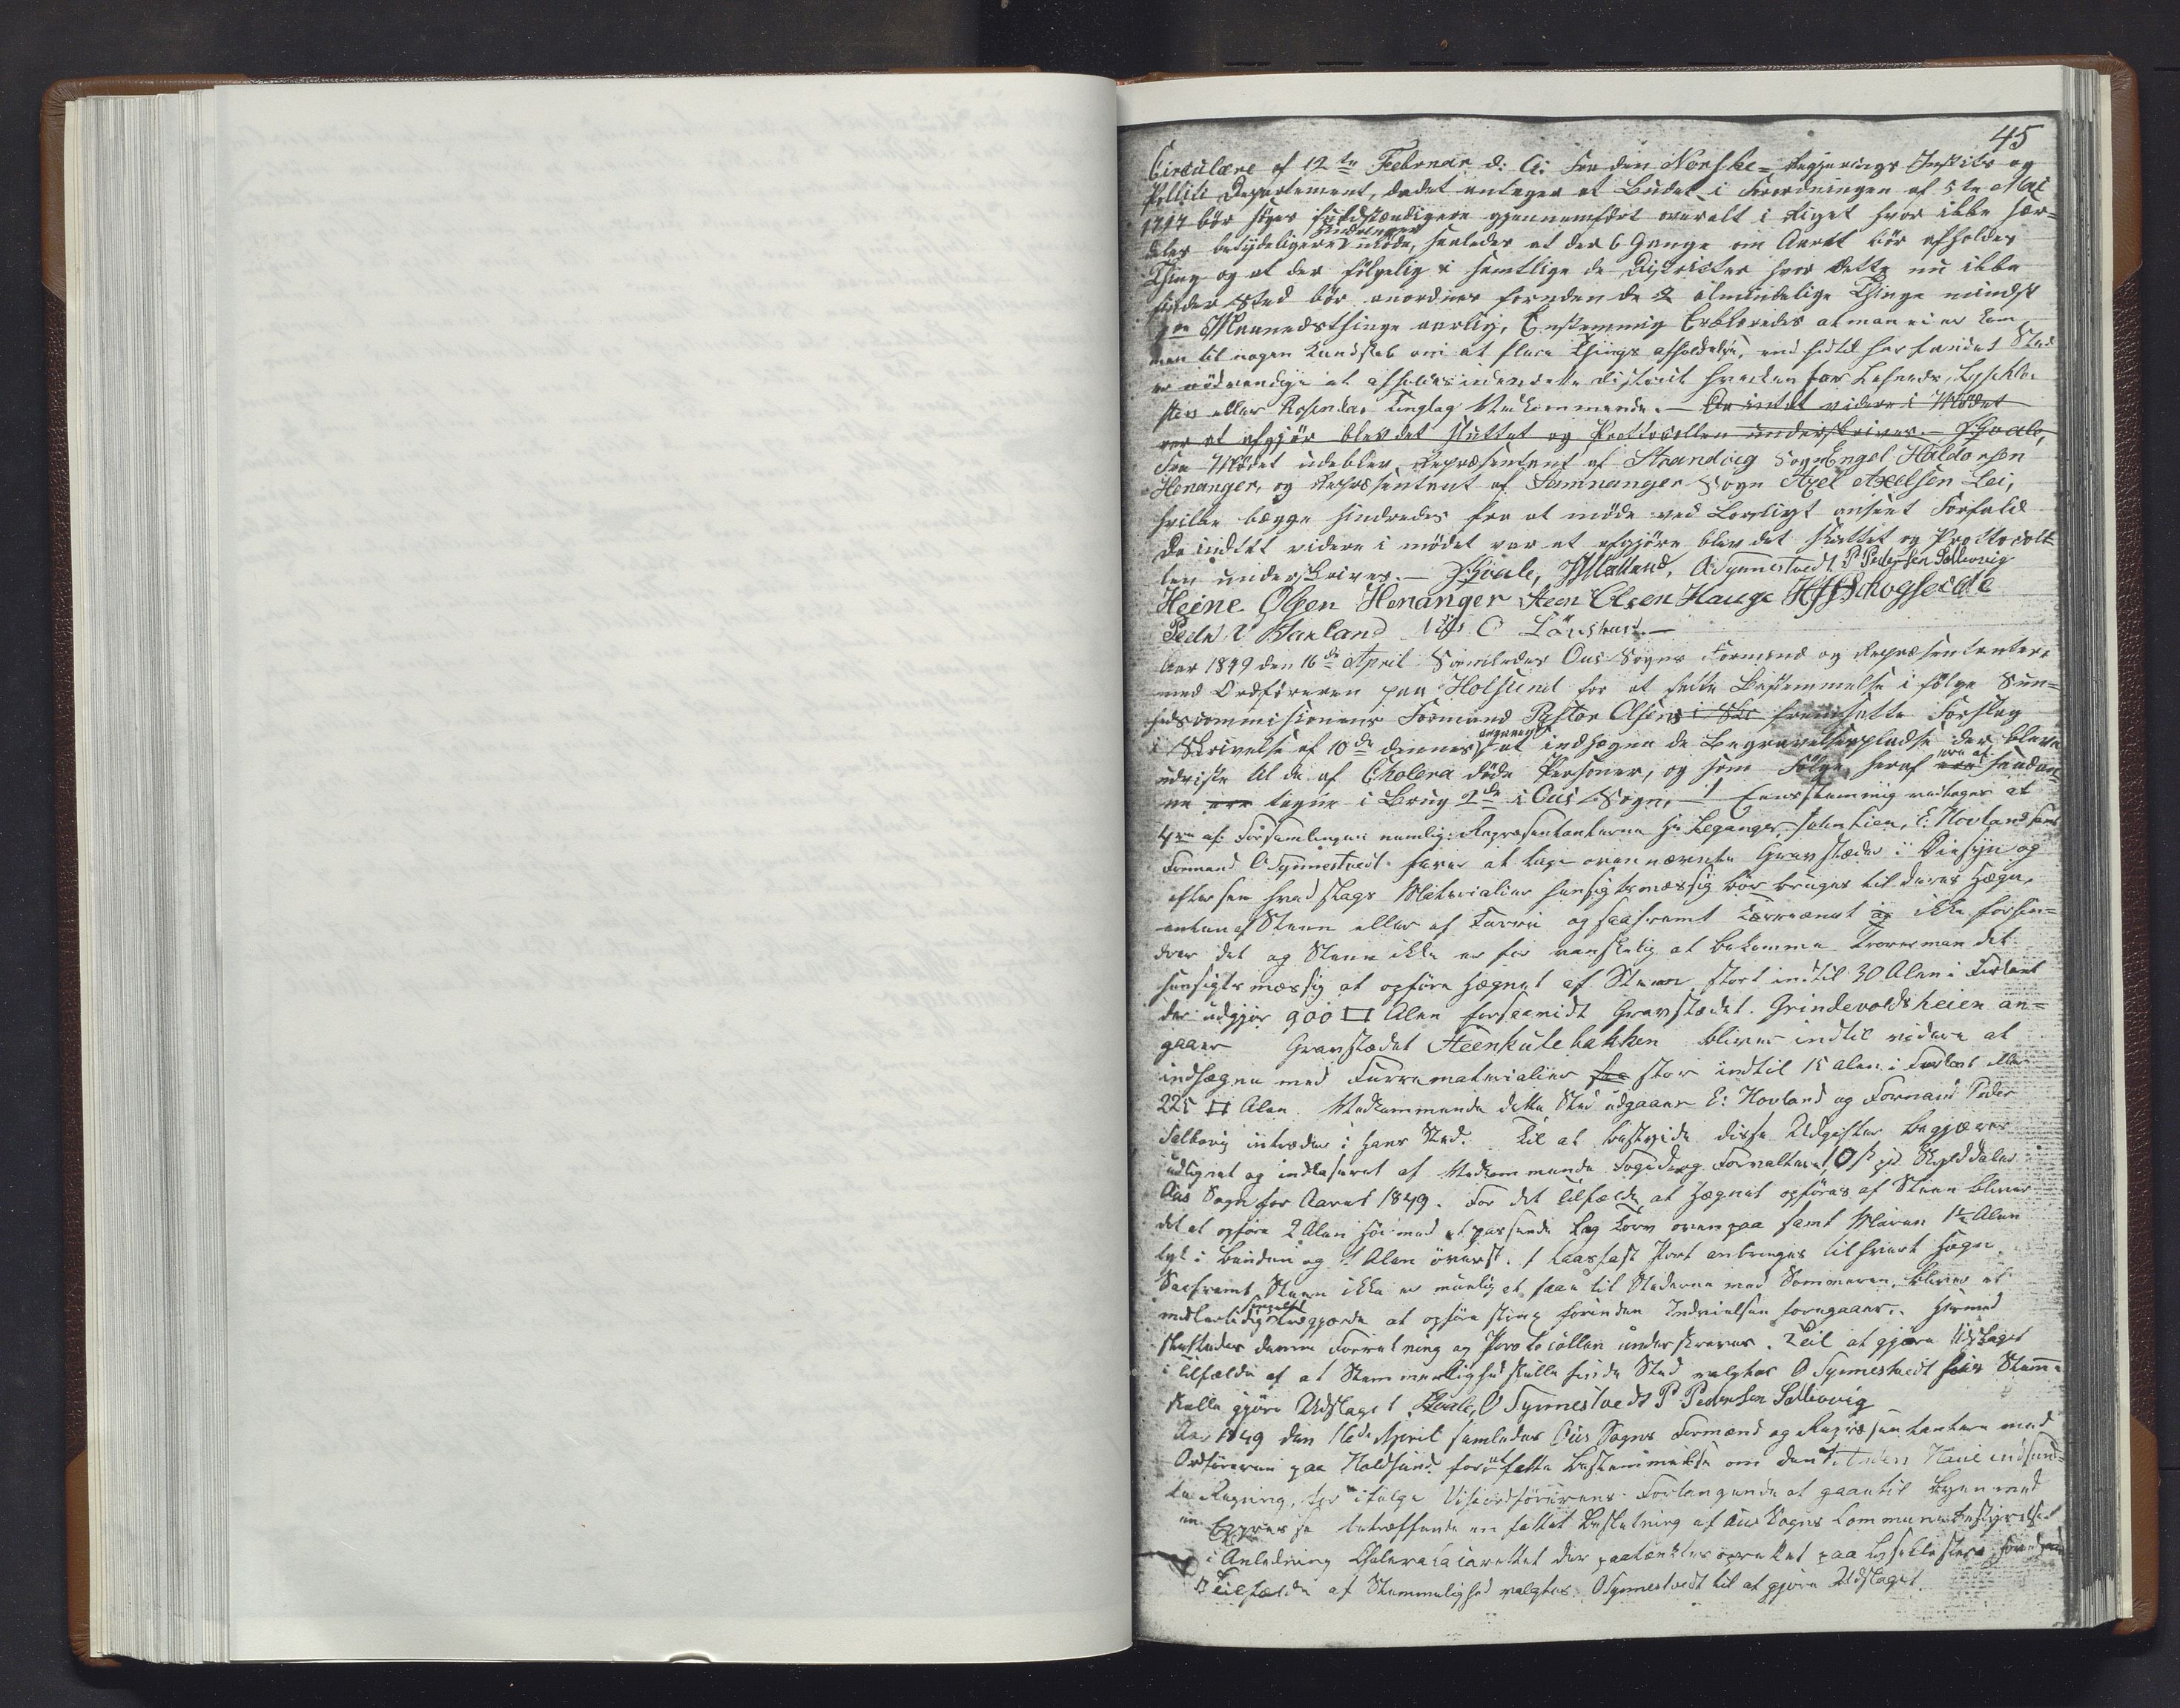 45
Circulære af 12te Februar d: A: fra den Norske Regjerings Justits og
Politi Departement, dadet antages at Budet i Forordningen af 5te Mai
1717 bør søges fuldstændigere gjennemført overalt i Riget hvor ikke sær-
deles betydeligere Hindringer møde, saaledes at der 6 Gange om Aaret bør afholdes
Thing og at der følgelig i samtlige de Districter hvor dette nu ikke
finder Sted bør anordnes foruden de 2 almindelige Thinge mindst
Maanedsthinge aarlig, Enstemmig Erklæredes at man ei er kom
men til nogen Kundskab om at flere Things afholdelse, end hidtil har fundet Sted
er nødvendige at afholdes inden dette District hverken for Vedkommende. – Da intet videre i Mødet
var at afgjør blev det sluttet og Protocollen underskrives. – JHvale,
Fra Mødet udeblev Repræsentant af Strandvig Sogn Engel Haldorsen
Henanger, og Repræsentant af Samnanger Sogn Axel Axelsen Lei,
hvilke begge hindredes fra at møde ved Lovligt anseet Forfald
Da indtet videre i mødet var at afgjøre blev det sluttet og Protocoll
len underskrives. – JHvale, Mølland, OSynnestvedt, P Pedersen Sallevvig
Heine Olsen Henanger Steen Olsen Hauge Skogseide
Peder Varland Nils O Lønhaus.–
Aar 1849 den 16de April Samledes Ous Sogns Formænd og Repræsentanter
med Ordføreren paa Holsund for at fatte Bestemmelse i følge Sun-
hedscommisionens Formand Pastor Olsens i Skr fremsatte Forslag
i Skrivelse af 10de dennes angaaende at indhegne de Begravelsespladse der bleve
udviste til de af Cholera døde Personer, og som Følge heraf ere af saadan-
ne ere tagne i Brug 2de i Ous Sogn, – Eensstemmig vedtages at
4re af Forsamlingen nemlig: Repræsentanterne Hs Leganger, John Lien, E: Hovland samt
Formand OSynnestvedt. farer at tage ovennævnte Gravstæder i Øiesyn og
eftersee hvad slags Materialier hensigtsmæssig bør bruges til deres Hægn,
enten af Steen eller af Furru og saafremt Terrænet og ikke forhin-
drer det og Steen ikke er for vanskelig at bekomme troer man det
hensigtsmæssig at opføre Hægnet af Steen stort indtil 30 Alen i Firkant
der udgjør 900 □ Alen forsaavidt Gravstædet. Grindevoldsheien an-
gaaer Gravstædet Steenkulebakken bliver indtil videre at
indhægne med Furrematerialier saa stor indtil 15 Alen i Firkant eller
225 □ Alen. Vedkommende dette Sted udgaaer E: Hovland og Formand Peder
Salbøvig indtræder i hans Sted. Til at bestride disse Udgifter begjæres
udlignet og indkasseret af Vedkommende Foged og Forvaltere 10 s pr. Skylddaler
Aus Sogn for Aaret 1849. For det tilfælde at Hægnet opføres af Steen bliver
det at opføre 2 Alen høi med et passende Lag Torv ovenpaa samt Muren 1½ Alen
tyk i Bunden og 1 Alen øverst. 1 Laasfast Port anbringes til hvert Hægn.
Saafremt Steen ikke er muelig at faae til Stederne med Sommeren, bliver et
midlertidig Træggjerde at opføre strax forinden Indvielsen foregaaer. Hermed
sluttedes denne Forretning og Protocollen underskreves. Til at gjøre Udslaget
i tilfælde af at Stemmerlighed skulle finde Sted valgtes O Synnestvedt hvis Stemme
skulle gjøre Udslaget. JHvale, O Synnestvedt P Pedersen Sallevvig
Aar 1849 den 16de April samledes Ous Sogns Formænd og Repræsentantere med
Ordføreren paa Holdsund for at fatte Bestemmelse om den indsend-
te Regning, for ifølge Viseordførerens Forlangende at gaae til Byen med
en Expresse betræffende en fattet Beslutning af Aus Sogns Communebestyrelse
i Anledning Choleralazarettet der paatænktes oprettet paa
I Tilfælde af Stemmelighed valgtes OSynnestvedt til at gjøre Udslaget.